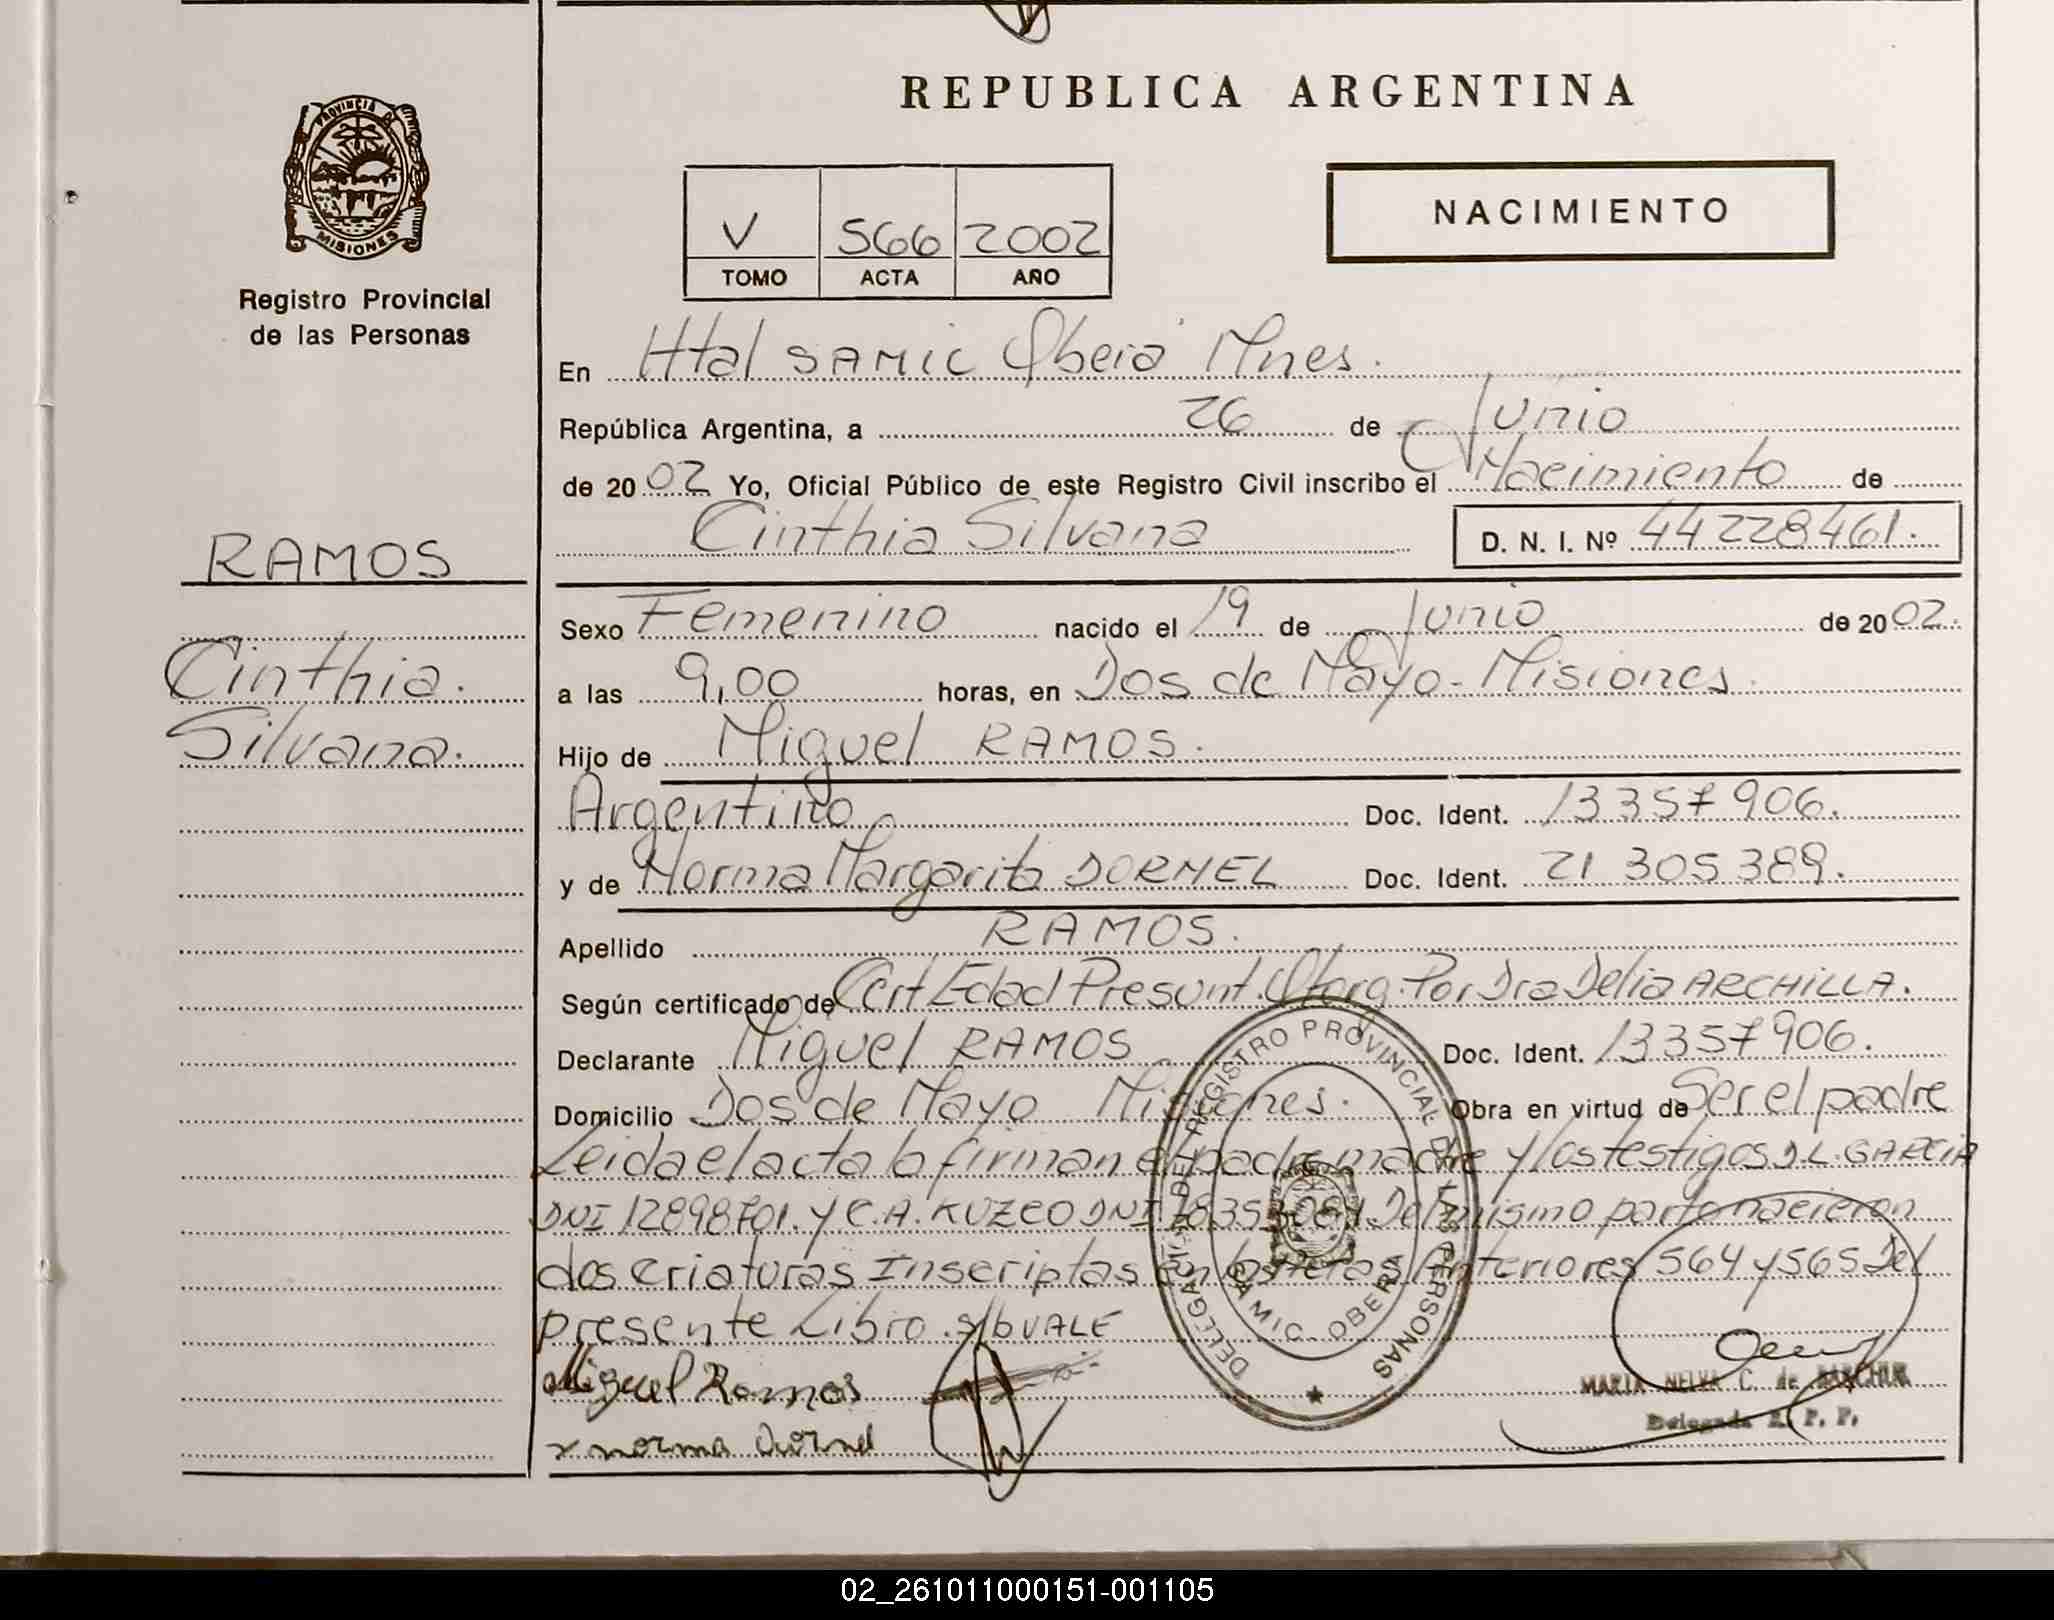 REPUBLICA ARGENTINA
PROVINCIA DE
MISIONES
Registro Provincial
de las Personas
V 566 2002
TOMO ACTA AÑO
NACIMIENTO
En Htal SAMIC Oberá Mnes.
República Argentina, a 26 de Junio
de 2002 Yo, Oficial Público de este Registro Civil inscribo el Nacimiento de
Cinthia Silvana D. N. I. Nº 44228461.
RAMOS
Cinthia.
Silvana.
Sexo Femenino nacido el 19 de Junio de 2002.
a las 9,00 horas, en Dos de Mayo - Misiones.
Hijo de Miguel RAMOS.
Argentino Doc. Ident. 13357906.
y de Norma Margarita DORNEL Doc. Ident. 21 305389.
Apellido RAMOS.
Según certificado de Cert Edad Presunt. Otorg. Por Dra Delia ARCHILLA.
Declarante Miguel RAMOS Doc. Ident. 13357906.
Domicilio Dos de Mayo Misiones. Obra en virtud de Ser el padre
Leida el acta la firman el padre madre y los testigos D.L. GARCIA
DNI 12898701. y C.A. KUZCO DNI Del mismo parto nacieron
dos criaturas Inscriptas en las Actas Anteriores 564 y 565 Del
presente Libro. S/b VALE
Miguel Ramos
x norma Dornel
REGISTRO PROVINCIAL DE LAS PERSONAS
DELEGACION
SAMIC - OBERA
MARIA NELVA C. de
Delegada R. P. P.
02_261011000151-001105